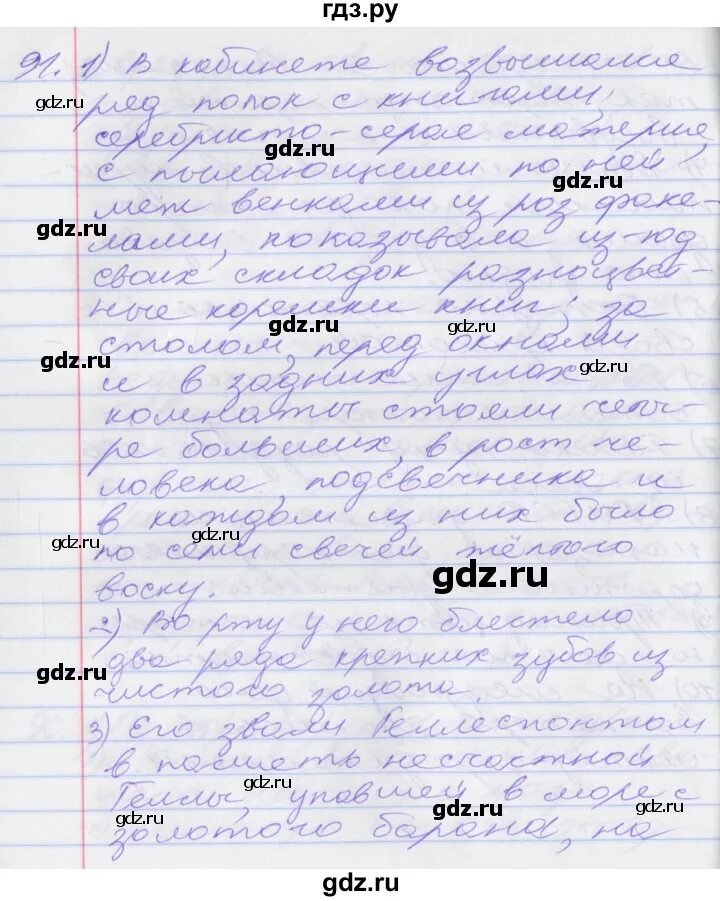 гдз.ру
91. 1) В кабинете возвышался
gdz.ru
ряд полок с книгами;
gdz.ru
серебристо-серая материя,
gdz.ru
с пылающими по ней
gdz.ru
меж венками из роз факе-
gdz.ru
лами, показывала из-под
своих складок разноцвет-
ные корешки книг; за
gdz.ru
gdz.ru
столом, перед окнами
gdz.ru
gdz.ru
и в задних углах
комнаты стояли четы-
ре больших, в рост че-
ловека, подсвечника и
в каждом из них было
gdz.ru
gdz.ru
по семи свечей жёлтого
gdz.ru
воску.
2) Во рту у него блестело
gdz.ru
два ряда крепких зубов из
gdz.ru
чистого золота.
3) Его звали Геллеспонтом
в память несчастной
gdz.ru
Геллы, упавшей в море с
gdz.ru
gdz.ru
золотого барана, на
gdz.ru